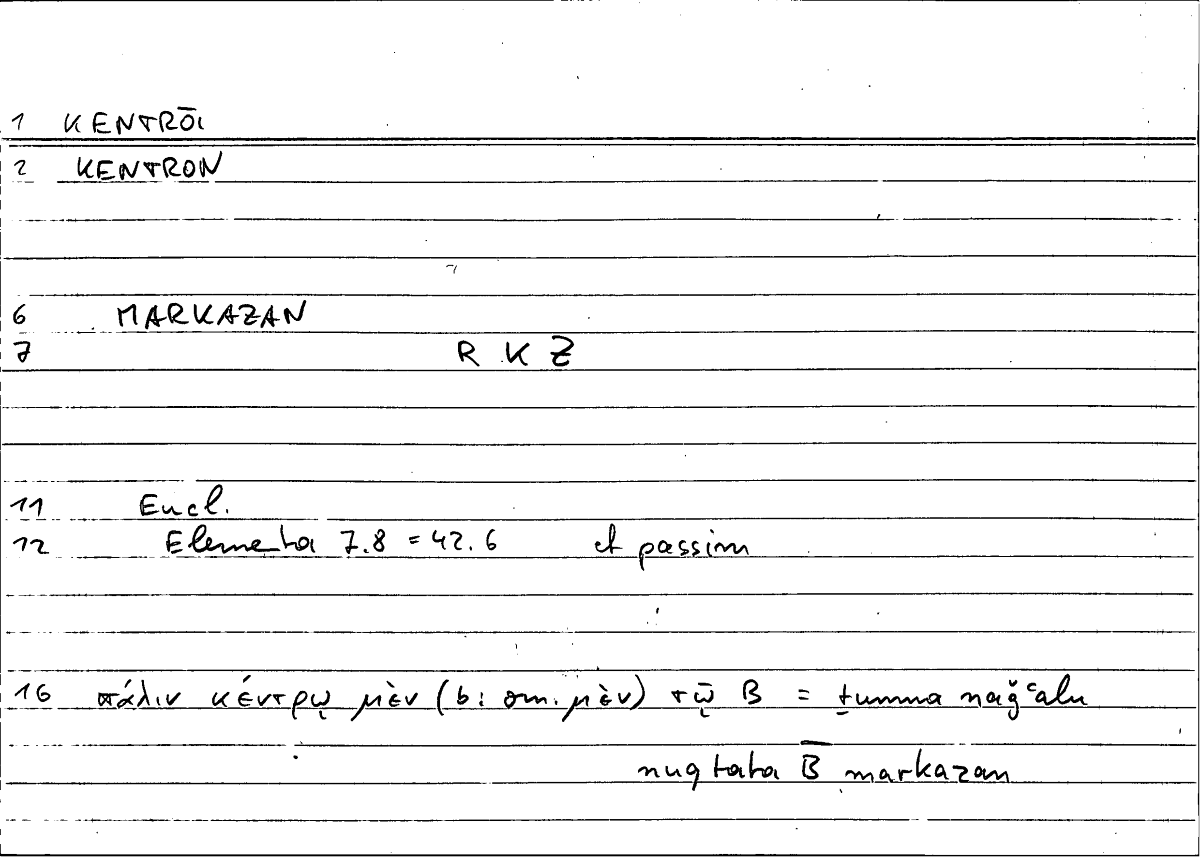 1 KENTRŌI
2 KENTRON
6 MARKAZAN
7 R K Z
11 Eucl.
12 Elementa 7.8 = 42.6 et passim
16 πάλιν κέντρῳ μὲν (b: om. μὲν) τῷ B = ṯumma naǧʿalu
nuqtata B̅ markazan